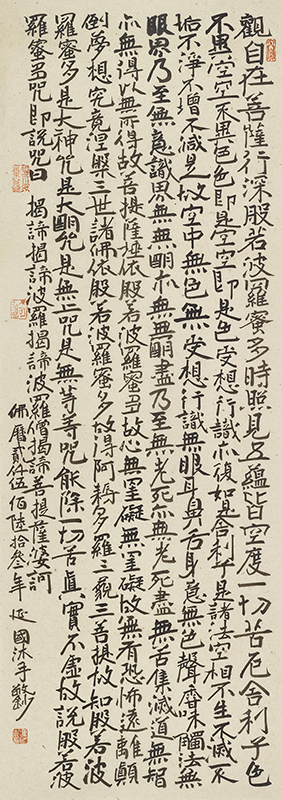 觀自在菩薩行深般若波羅蜜多時照見五蘊皆空度一切苦厄舍利子色
不異空空不異色色即是空空即是色受想行識亦復如是舍利子是諸法空相不生不滅不
垢不淨不增不減是故空中無色無受想行識無眼耳鼻舌身意無色聲香味觸法無
眼界乃至無意識界無無明亦無無明盡乃至無老死亦無老死盡無苦集滅道無智
亦無得以無所得故菩提薩埵依般若波羅蜜多故心無罣礙無罣礙故無有恐怖遠離顛
倒夢想究竟涅槃三世諸佛依般若波羅蜜多故得阿耨多羅三藐三菩提故知般若波
羅蜜多是大神咒是大明咒是無上咒是無等等咒能除一切苦真實不虛故說般若波
羅蜜多咒即說咒曰 揭諦揭諦波羅揭諦波羅僧揭諦菩提薩婆訶
佛曆貳仟伍佰陸拾叁年 延國沐手敬抄